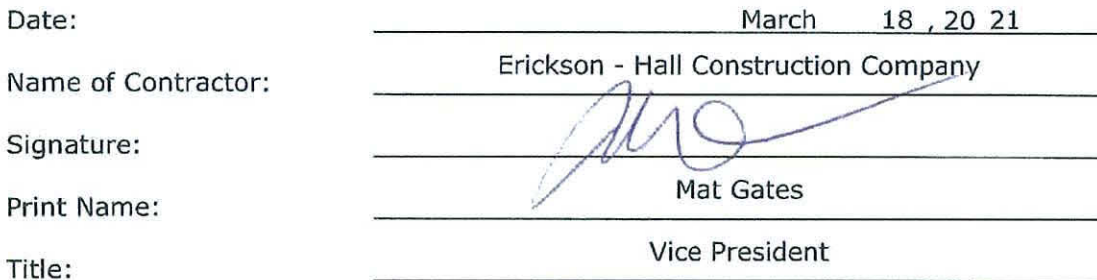 Date: March 18 , 20 21
Name of Contractor: Erickson - Hall Construction Company
Signature:
Print Name: Mat Gates
Title: Vice President